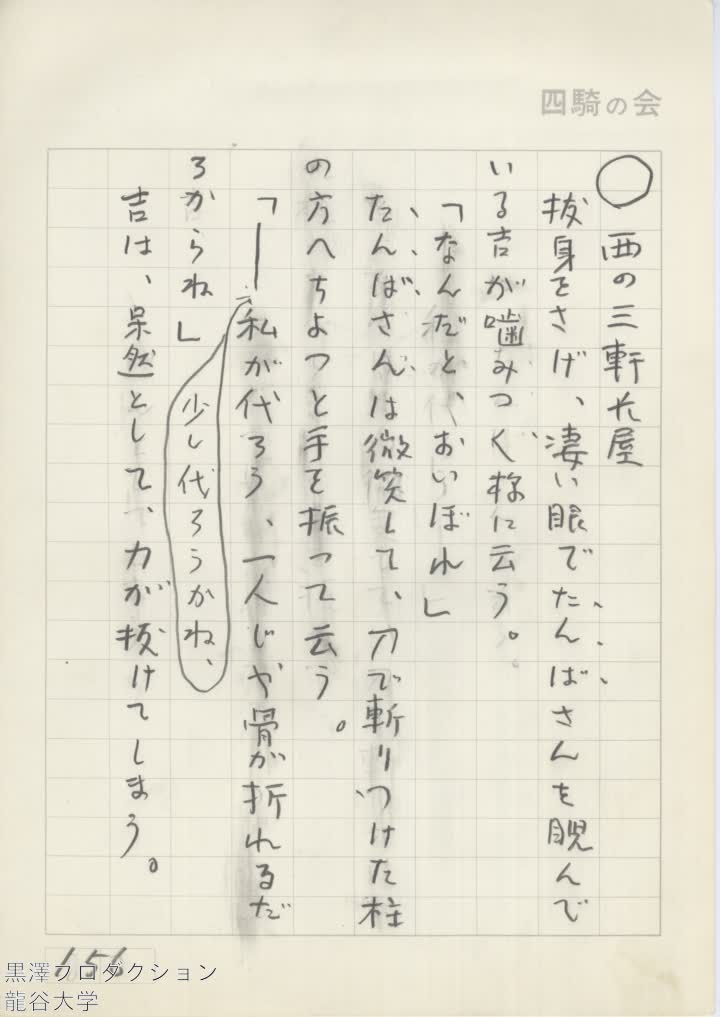 四騎の会
○西の三軒長屋
抜身をさげ、凄い眼でたんばさんを睨んで
いる吉が噛みつく様に云う。
「なんだと、おいぼれ」
たんばさんは微笑して、刀で斬りつけた柱
の方へちょつと手を振って云う。
「――私が代ろう、一人じゃ骨が折れるだ
ろからね」
少し代ろうかね、
吉は、呆然として、力が抜けてしまう。
156
黒澤プロダクション
龍谷大学